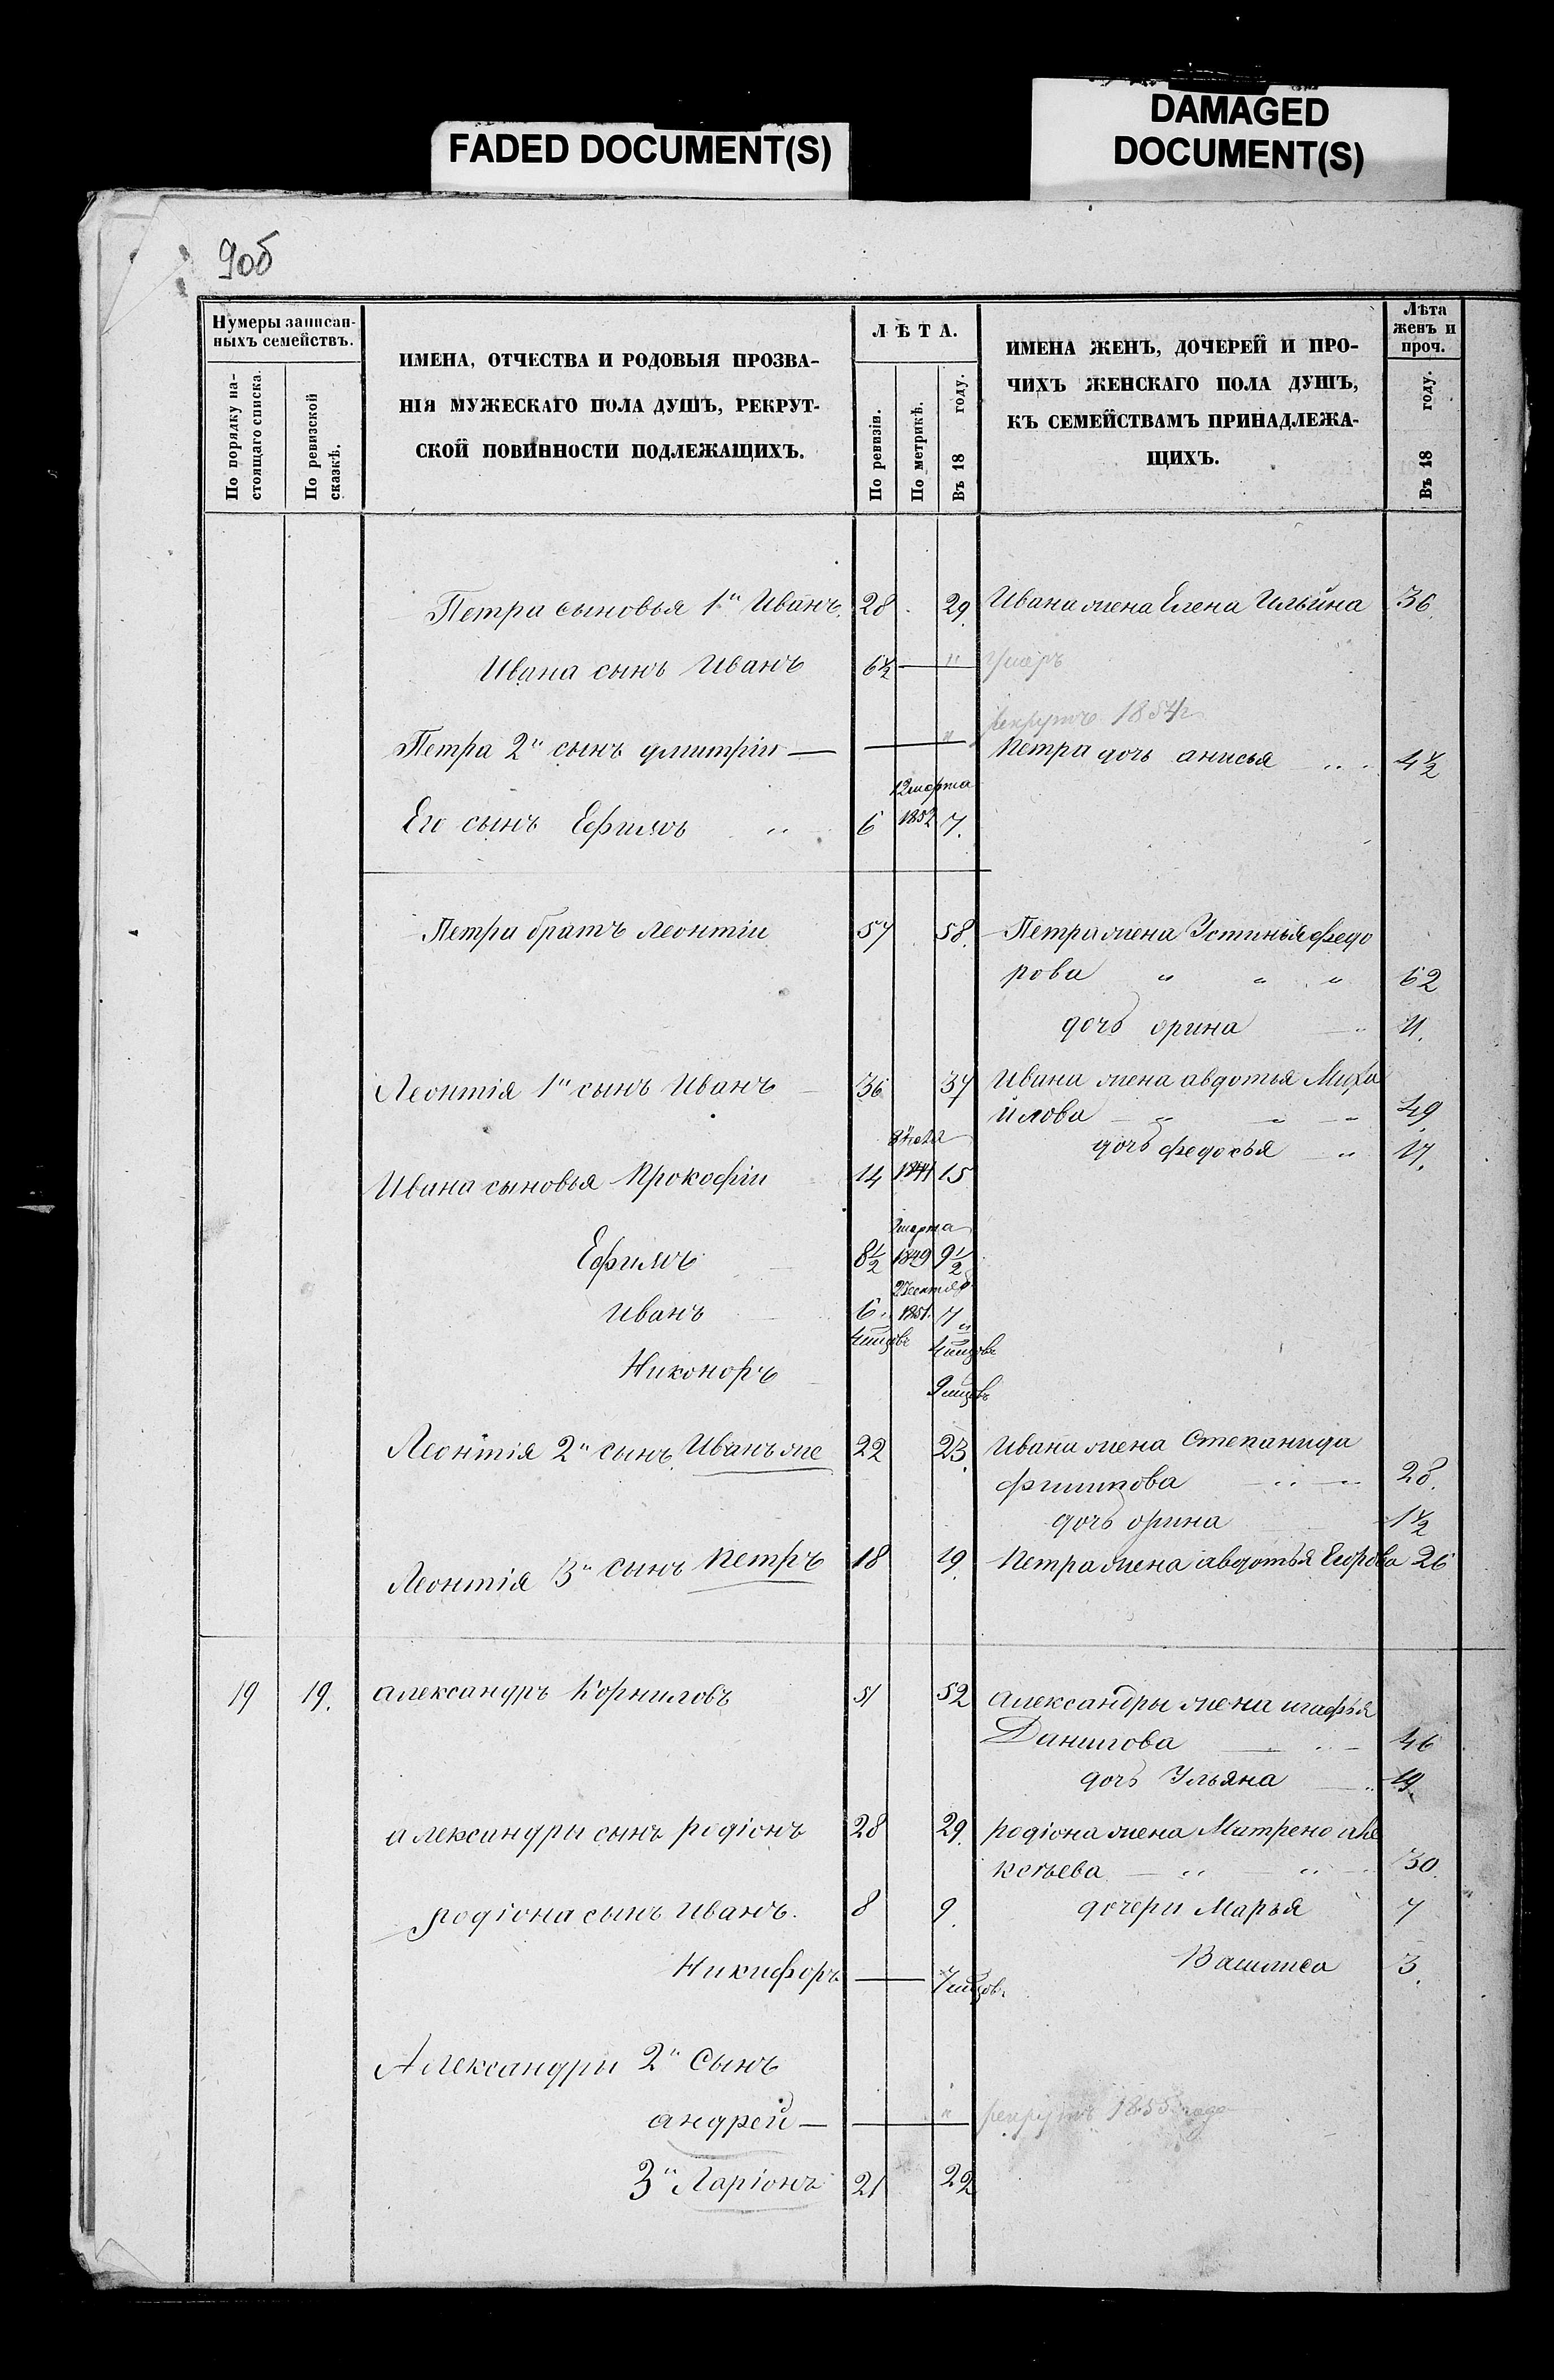 FADED DOCUMENT(S)
DAMAGED
DOCUMENT(S)
90б
Нумеры записан-
ныхъ семействъ.
По порядку на-
стоящаго списка.
По ревизской
сказкѣ.
ИМЕНА, ОТЧЕСТВА И РОДОВЫЯ ПРОЗВА-
НІЯ МУЖЕСКАГО ПОЛА ДУШЪ, РЕКРУТ-
СКОЙ ПОВИННОСТИ ПОДЛЕЖАЩИХЪ.
ЛѢТА.
По ревизіи.
По метрикѣ.
Въ 18 году.
ИМЕНА ЖЕНЪ, ДОЧЕРЕЙ И ПРО-
ЧИХЪ ЖЕНСКАГО ПОЛА ДУШЪ,
КЪ СЕМЕЙСТВАМЪ ПРИНАДЛЕЖА-
ЩИХЪ.
Лѣта
женъ и
проч.
Въ 18 году.
Петра сыновья 1й Иванъ. 28 29. Ивана жена Елена Ильина 36.
Ивана сынъ Иванъ 6½ — " умеръ
рекрутъ 1854г
Петра 2й сынъ дмитріи — — " Петра дочь анисья 4½
12 марта
Его сынъ Ефимъ " 6 1852 7.
Петра братъ леонтіи 57 58. Петра жена Устинья федо
рова " " " 62
дочь орина 11.
Леонтія 1й сынъ Иванъ 36 37 Ивана жена авдотья Миха
илова 49.
дочь федосья 17.
Ивана сыновья Прокофіи 14 1844 15
марта
Ефимъ 8½ 1849 9½
Иванъ 6 1851. 7 "
4 мцовъ 4 мцовъ
Никоноръ 9 мцовъ
Леонтія 2й сынъ Иванъ же 22 23. Ивана жена Степанида
филипова 28.
дочь орина 1½
Леонтія 3й сынъ Петръ 18 19. Петра жена авдотья Егорова 26
19 19. александръ Корниловъ 51 52 александры жена агафья
Данилова 46
дочь Ульяна 19.
александры сынъ родіонъ 28 29. родіона жена Матрена але
ксѣева 30.
родіона сынъ Иванъ. 8 9. дочери Марья 7
Никифоръ — 7 мцовъ Василиса 3.
Александры 2й Сынъ
андрей — — " рекрутъ 1855 года
3й Ларіонъ 21 22